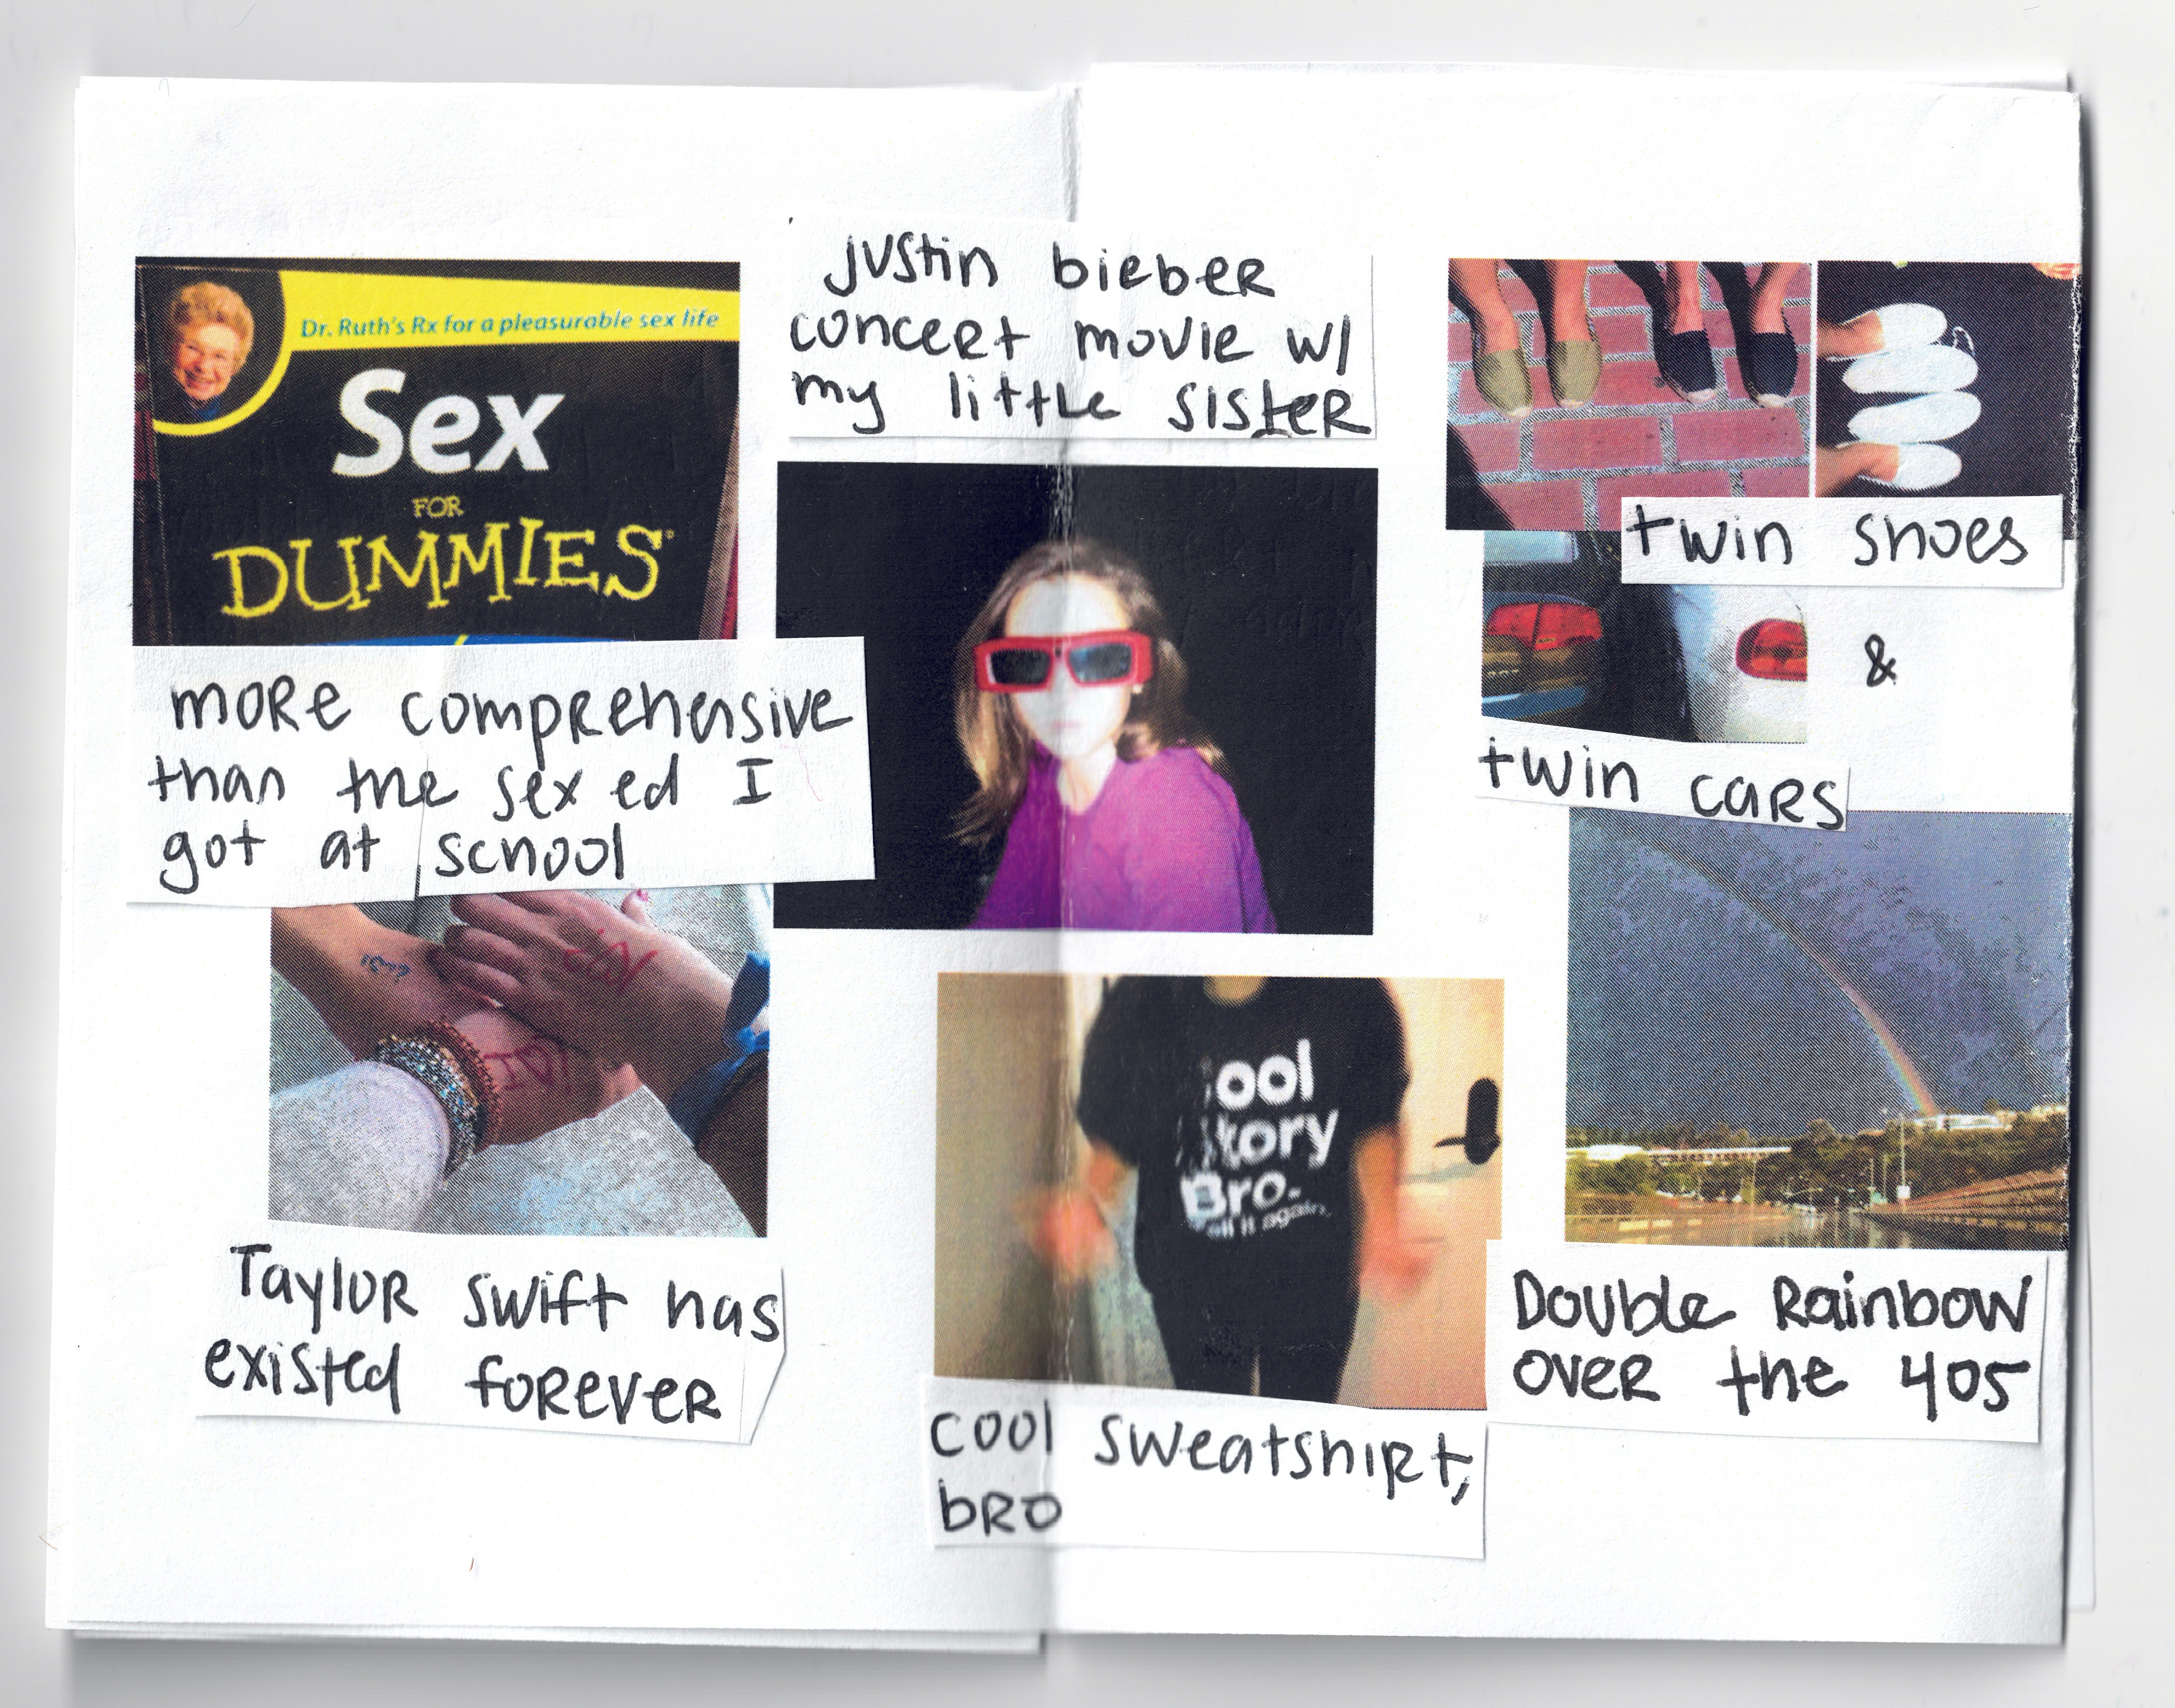 Dr. Ruth's Rx for a pleasurable sex life
Sex
FOR
DUMMIES
more comprehensive
than the sex ed I
got at school
justin bieber
concert movie w/
my little sister
twin shoes
&
twin cars
Taylor Swift has
existed forever
ool
tory
Bro.
ell it again.
cool sweatshirt,
bro
Double Rainbow
over the 405